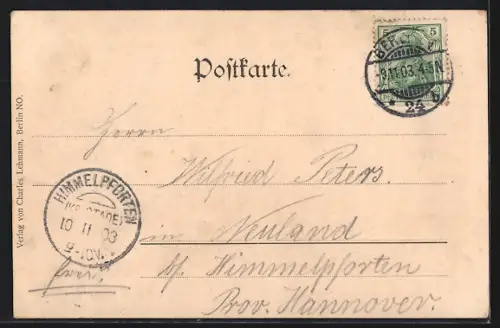 5 5
BERLIN
9.11.03. 4-5N.
* 24 b
Postkarte.
Verlag von Charles Lehmann, Berlin NO.
Herrn
Wilfried Peters.
HIMMELPFORTEN
(KR. STADE)
10 11 03
in Neuland
b/ Himmelpforten
Prov. Hannover.